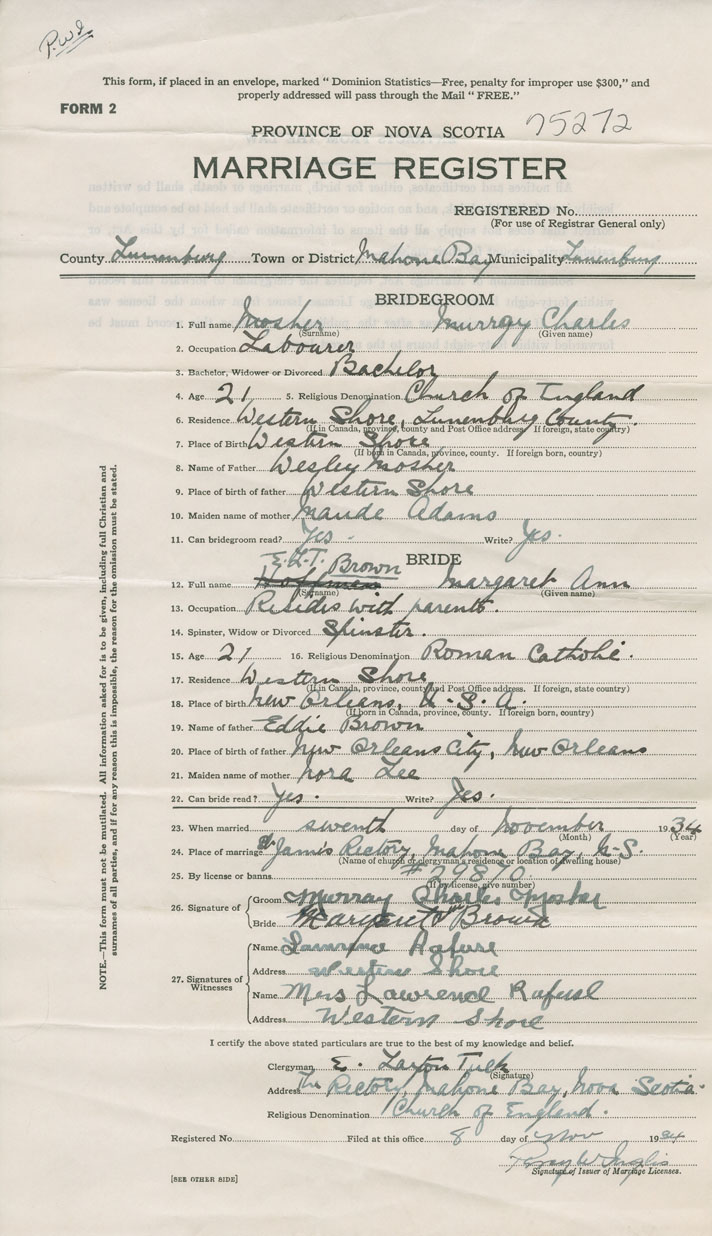 P.W.I.
This form, if placed in an envelope, marked “ Dominion Statistics—Free, penalty for improper use $300,” and
properly addressed will pass through the Mail “ FREE.”
FORM 2
PROVINCE OF NOVA SCOTIA 75272
MARRIAGE REGISTER
REGISTERED No.
(For use of Registrar General only)
County Lunenburg Town or District Mahone Bay Municipality Lunenburg
BRIDEGROOM
1. Full name Mosher Murray Charles
(Surname) (Given name)
2. Occupation Labourer
3. Bachelor, Widower or Divorced Bachelor
4. Age 21 5. Religious Denomination Church of England
6. Residence Western Shore, Lunenburg County.
(If in Canada, province, county and Post Office address. If foreign, state country)
7. Place of Birth Western Shore
(If born in Canada, province, county. If foreign born, country)
8. Name of Father Wesley Mosher
9. Place of birth of father Western Shore
10. Maiden name of mother Maude Adams
11. Can bridegroom read? Yes - Write? Yes.
BRIDE
E.L.T. Brown
12. Full name Hoffman Margaret Ann
(Surname) (Given name)
13. Occupation Resides with parents.
14. Spinster, Widow or Divorced Spinster.
15. Age 21 16. Religious Denomination Roman Catholic.
17. Residence Western Shore
(If in Canada, province, county and Post Office address. If foreign, state country)
18. Place of birth New Orleans, U.S.A.
(If born in Canada, province, county. If foreign born, country)
19. Name of father Eddie Brown
20. Place of birth of father New Orleans City, New Orleans
21. Maiden name of mother Nora Lee
22. Can bride read? Yes. Write? Yes.
23. When married seventh day of November 1934
(Month) (Year)
24. Place of marriage St James Rectory, Mahone Bay, N.S.
(Name of church or clergyman's residence or location of dwelling house)
25. By license or banns # 29870
(If by license, give number)
26. Signature of
Groom Murray Charles Mosher
Bride Margaret Ann Brown
27. Signatures of Witnesses
Name Lawrence Rafuse
Address Western Shore
Name Mrs Lawrence Rafuse
Address Western Shore
I certify the above stated particulars are true to the best of my knowledge and belief.
Clergyman E. Laxton Tuck
(Signature)
Address The Rectory, Mahone Bay, Nova Scotia.
Religious Denomination Church of England.
Registered No. Filed at this office 8 day of Nov 1934
Percy W Inglis
Signature of Issuer of Marriage Licenses.
[SEE OTHER SIDE]
NOTE.—This form must not be mutilated. All information asked for is to be given, including full Christian and
surnames of all parties, and if for any reason this is impossible, the reason for the omission must be stated.